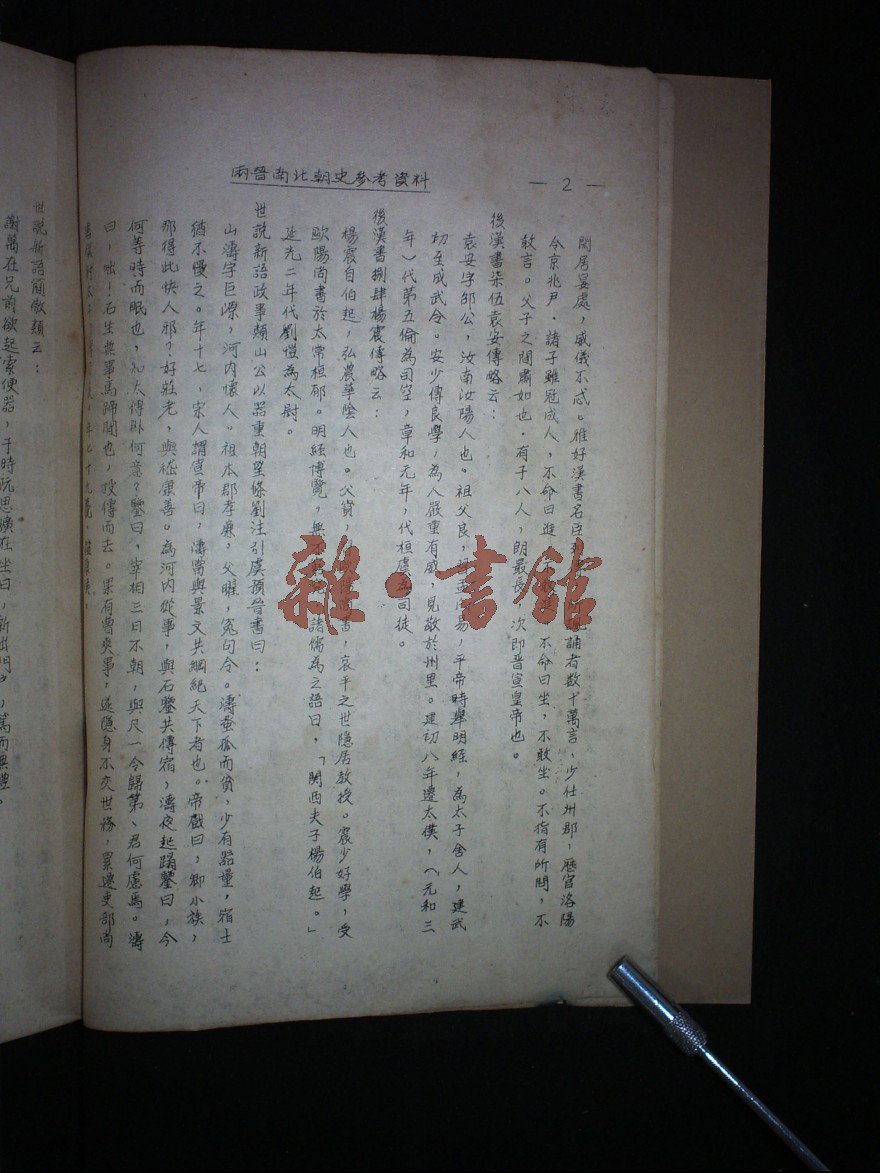 兩晉南北朝史參考資料
— 2 —
閒居宴處，威儀不忒。雅好漢書名臣 誦者数十萬言，少仕州郡，歷官洛陽
令京兆尹．諸子雖冠成人，不命曰進， 不命曰坐，不敢坐。不指有所問，不
敢言。父子之間肅如也．有子八人，朗最長，次即晉宣皇帝也。
後漢書柒伍袁安傳略云：
袁安字邵公，汝南汝陽人也。祖父良， 易，平帝時舉明經，為太子舍人，建武
初至成武令。安少傳良學，為人嚴重有威，見敬於州里。建初八年遷太僕，（元和三
年）代第五倫為司空，章和元年，代桓虞為司徒。
後漢書捌肆楊震傳略云：
楊震自伯起，弘農華陰人也。父寶， 書，哀平之世隱居教授。震少好學，受
歐陽尚書於太常桓郁。明經博覽，無 諸儒為之語曰，「関西夫子楊伯起。」
延光二年代劉愷為太尉。
世說新語政事類山公以器重朝望條劉注引虞預晉書曰：
山濤字巨源，河内懷人。祖本郡孝廉，父曜，冤句令。濤蚤孤而貧，少有器量，宿士
猶不慢之。年十七，宗人謂宣帝曰，濤當與景文共綱紀天下者也。帝戲曰，卿小族，
那得此快人邪？好莊老，與嵇康善。為河内從事，與石鑒共傳宿，濤夜起蹋鑒曰，今
何等時而眠也，知太傅卧何意？鑒曰，宰相三日不朝，與尺一令歸第、君何慮焉。濤
曰，咄！石生無事馬蹄間也，投傳而去。果有曹爽事，遂隱身不交世務，累遷吏部尚
世說新語簡傲類云：
謝萬在兄前欲起索便器，于時阮思曠在坐曰，新出門戶，篤而無禮。
雜·書館